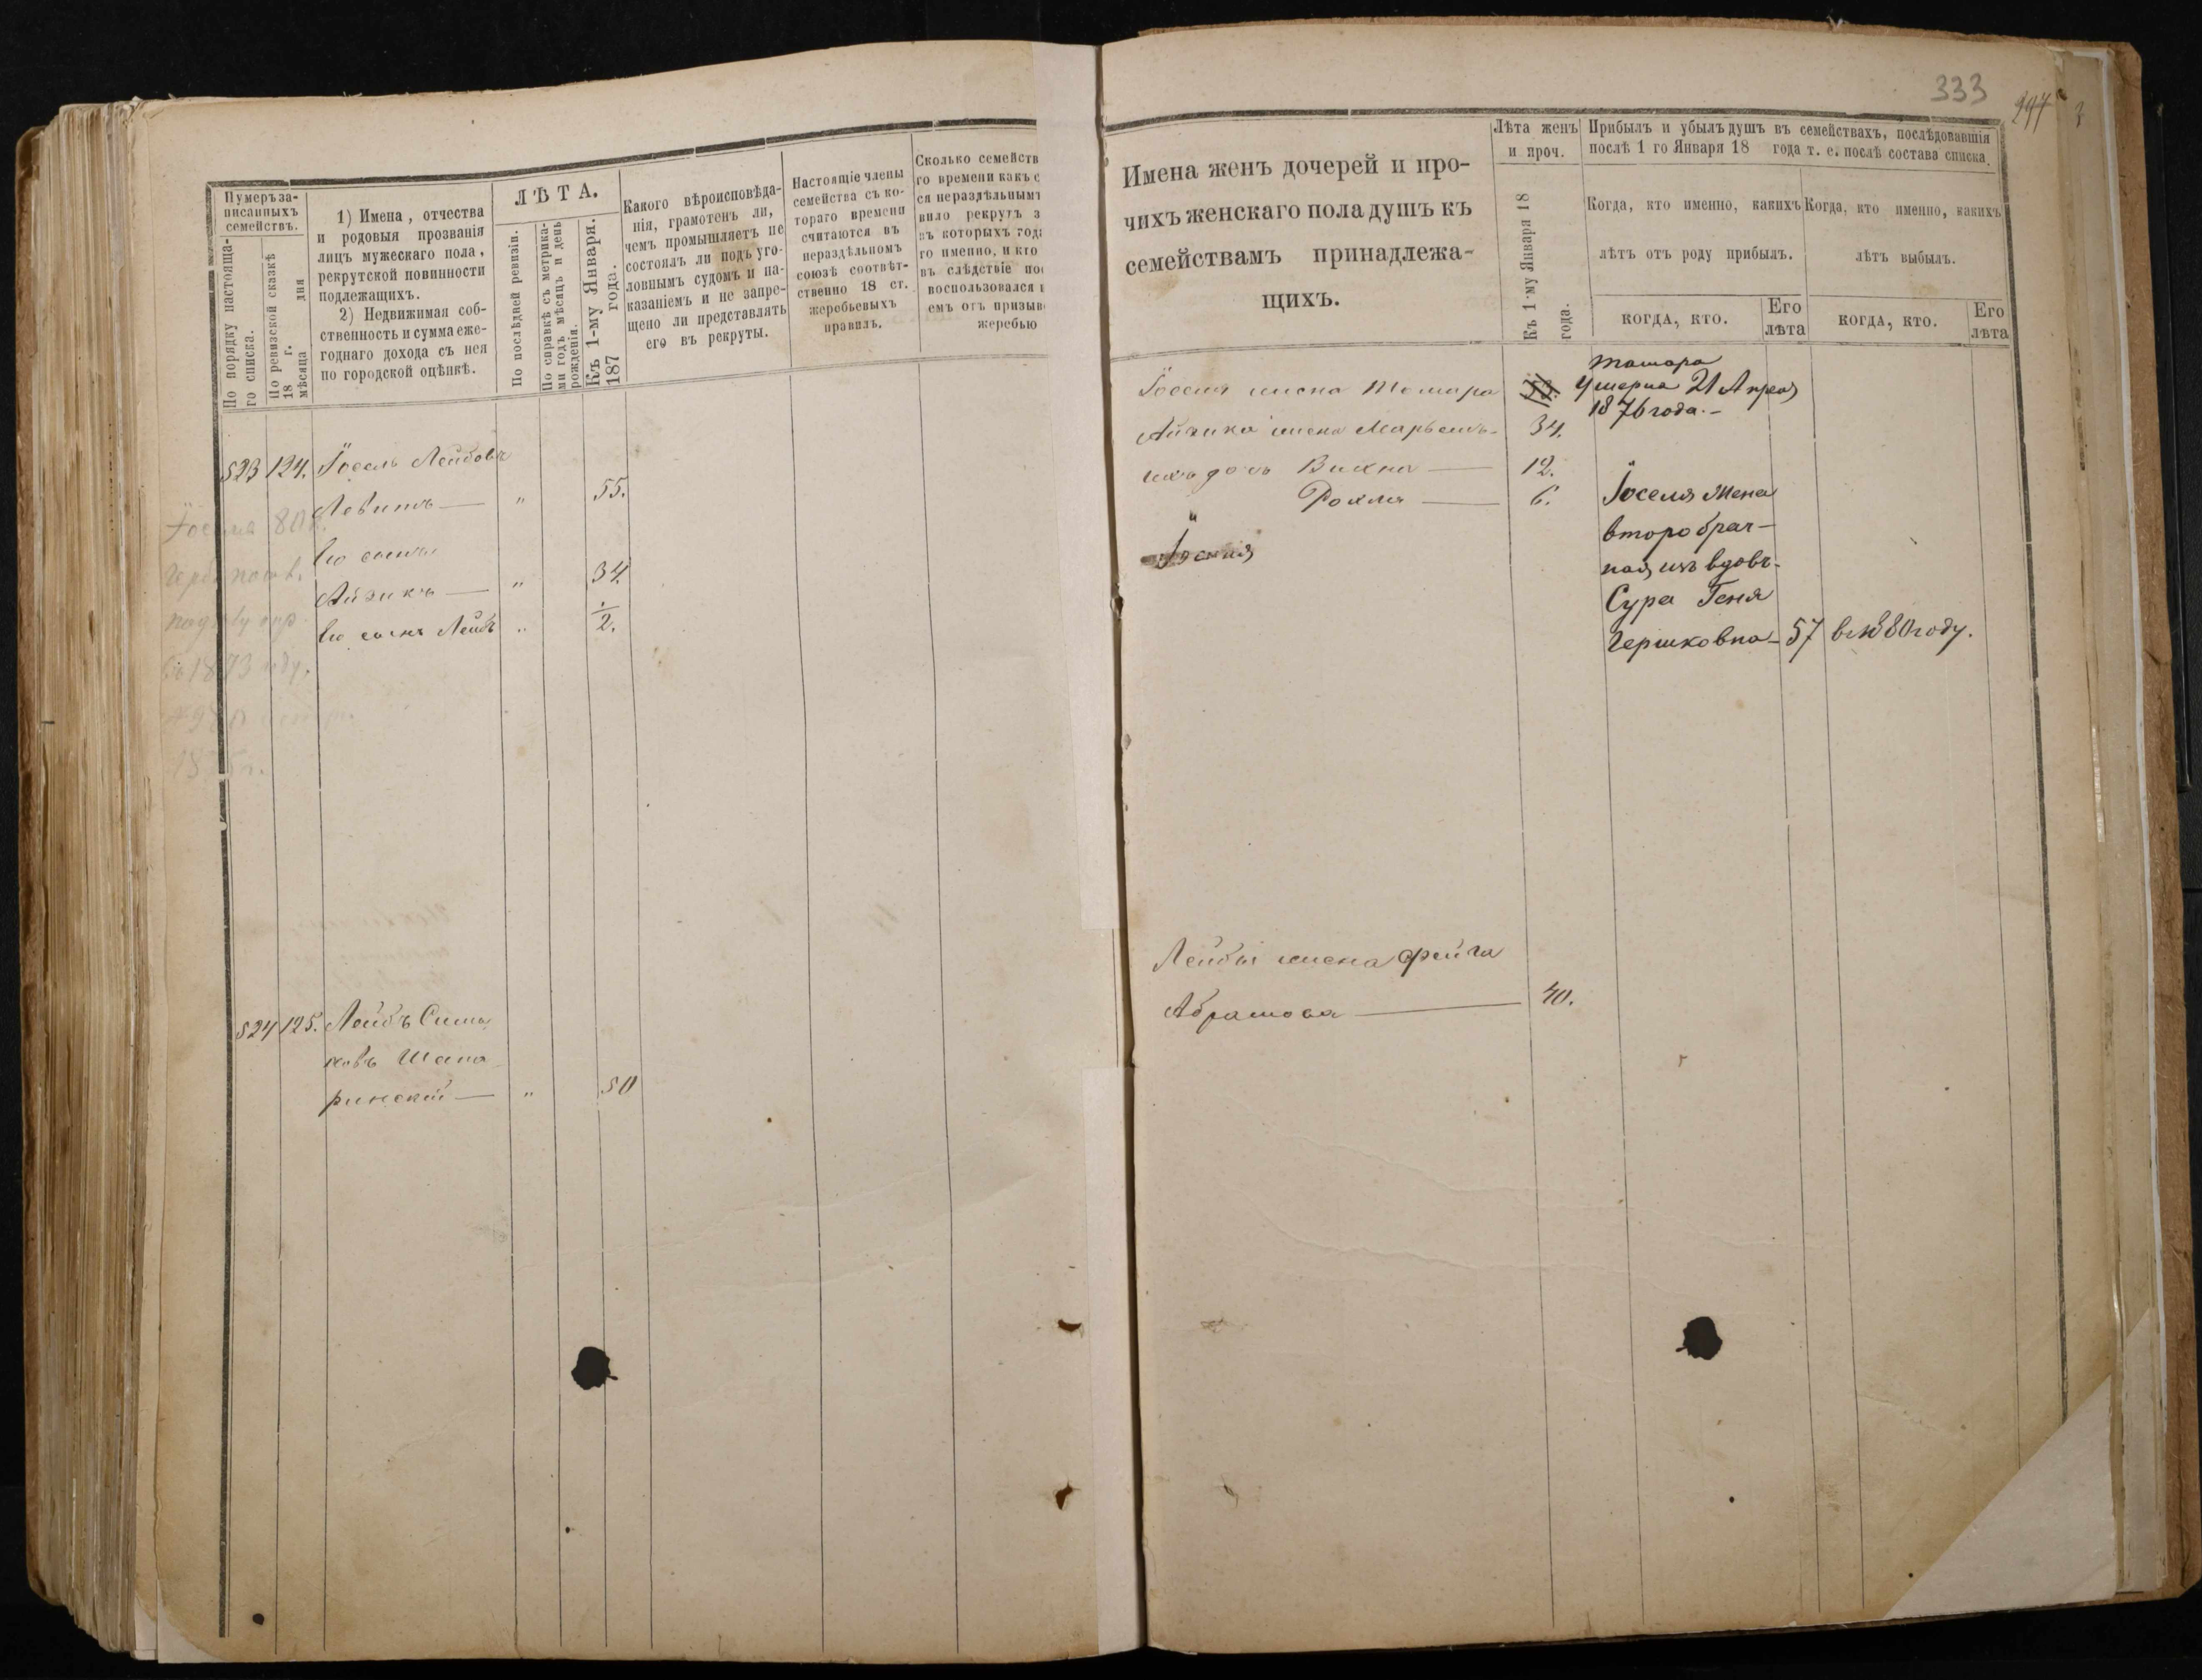 Нумеръ за-
писанныхъ
семействъ.
По порядку настояща-
го списка.
По ревизской сказкѣ
18 г.
мѣсяца дня
1) Имена, отчества
и родовыя прозванія
лицъ мужескаго пола,
рекрутской повинности
подлежащихъ.
2) Недвижимая соб-
ственность и сумма еже-
годнаго дохода съ нея
по городской оцѣнкѣ.
ЛѢТА.
По послѣдней ревизіи.
По справкѣ съ метрика-
ми годъ мѣсяцъ и день
рожденія.
Къ 1-му Января.
187 года.
Какого вѣроисповѣда-
нія, грамотенъ ли,
чемъ промышляетъ не
состоялъ ли подъ уго-
ловнымъ судомъ и на-
казаніемъ и не запре-
щено ли представлять
его въ рекруты.
Настоящіе члены
семейства съ ко-
тораго времени
считаются въ
нераздѣльномъ
союзѣ соотвѣт-
ственно 18 ст.
жеребьевыхъ
правилъ.
Сколько семейств
го времени какъ с
ся нераздѣльнымъ
вило рекрутъ з
въ которыхъ год
го именно, и кто
въ слѣдствіе по
воспользовался
емъ отъ призыв
жеребью
523 124. Іосель Лейбовъ
Левитъ — " 55.
Его сынъ
Айзикъ — " 34.
Его сынъ Лейбъ " 1/2.
524 125. Лейбъ Симъ
ховъ Шапо
ринскій — " 50
333
Имена женъ дочерей и про-
чихъ женскаго пола душъ къ
семействамъ принадлежа-
щихъ.
Лѣта женъ
и проч.
Къ 1-му Января 18
года.
Прибылъ и убылъ душъ въ семействахъ, послѣдовавшія
послѣ 1 го Января 18 года т. е. послѣ состава списка.
Когда, кто именно, какихъ
лѣтъ отъ роду прибылъ.
Когда, кто именно, какихъ
лѣтъ выбылъ.
КОГДА, КТО.
Его
лѣта
КОГДА, КТО.
Его
лѣта
Іоселя жена Томара
Айзика жена Марьемъ 34.
ихъ дочь Вихна — 12.
Рохля — 6.
Іоселя
Томара
Умерла 21 Апреля
1876 года. –
Іоселя Жена
второбрач-
ная изъ вдовъ
Сура Геня
Гершковна – 57 въ 1880 году.
Лейбы жена Фейга
Абрамова — 40.